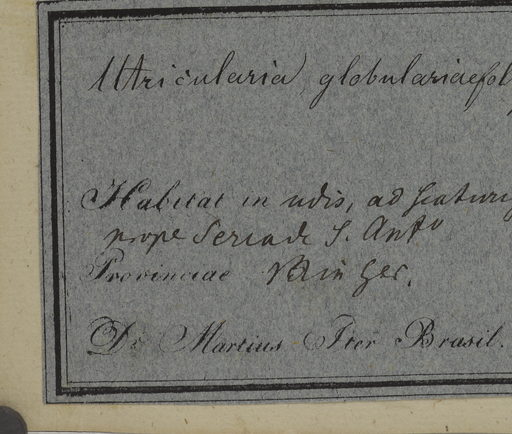 Utricularia globulariaefol
Habitat in udis, ad scaturig
prope Serra de S. Anto
Provinciae Min Ger.
Dr Martius Iter Brasil.